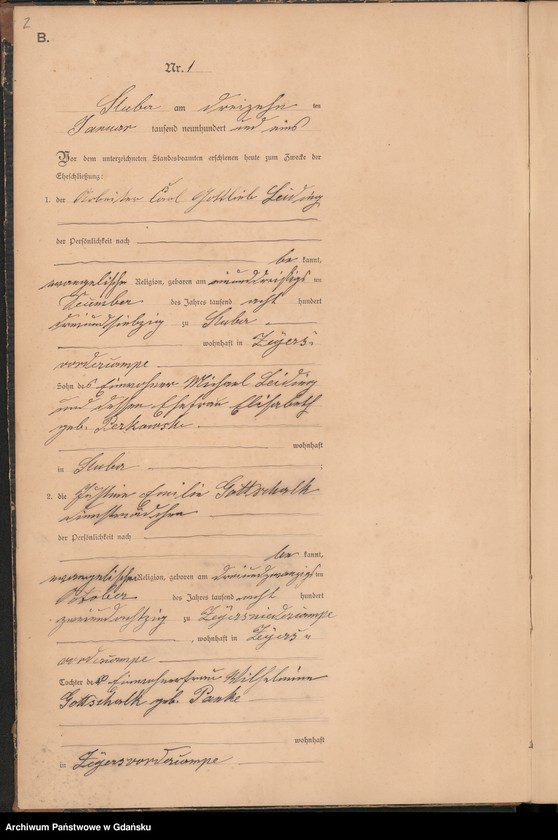 2
B.
Nr. 1
Stuba am dreizehn ten
Januar tausend neunhundert und eins
Vor dem unterzeichneten Standesbeamten erschienen heute zum Zwecke der
Eheschließung:
1. der Arbeiter Carl Gottlieb Leiding
der Persönlichkeit nach
be kannt,
evangelischer Religion, geboren am einunddreißigsten
Dezember des Jahres tausend acht hundert
dreiundsiebzig zu Stuba
wohnhaft in Zeyers-
vordercampe
Sohn des Einwohner Michael Leiding
und dessen Ehefrau Elisabeth
geb.
wohnhaft
in Stuba ;
2. die Justine Emilie Gottschalk
Dienstmädchen
der Persönlichkeit nach
be kannt,
evangelischer Religion, geboren am dreiundzwanzigsten
Oktober des Jahres tausend acht hundert
zweiundachtzig zu Zeyersniedercampe
, wohnhaft in Zeyers-
vordercampe
Tochter der Einwohnerfrau Wilhelmine
Gottschalk geb. Panke
wohnhaft
in Zeyersvordercampe
Archiwum Państwowe w Gdańsku